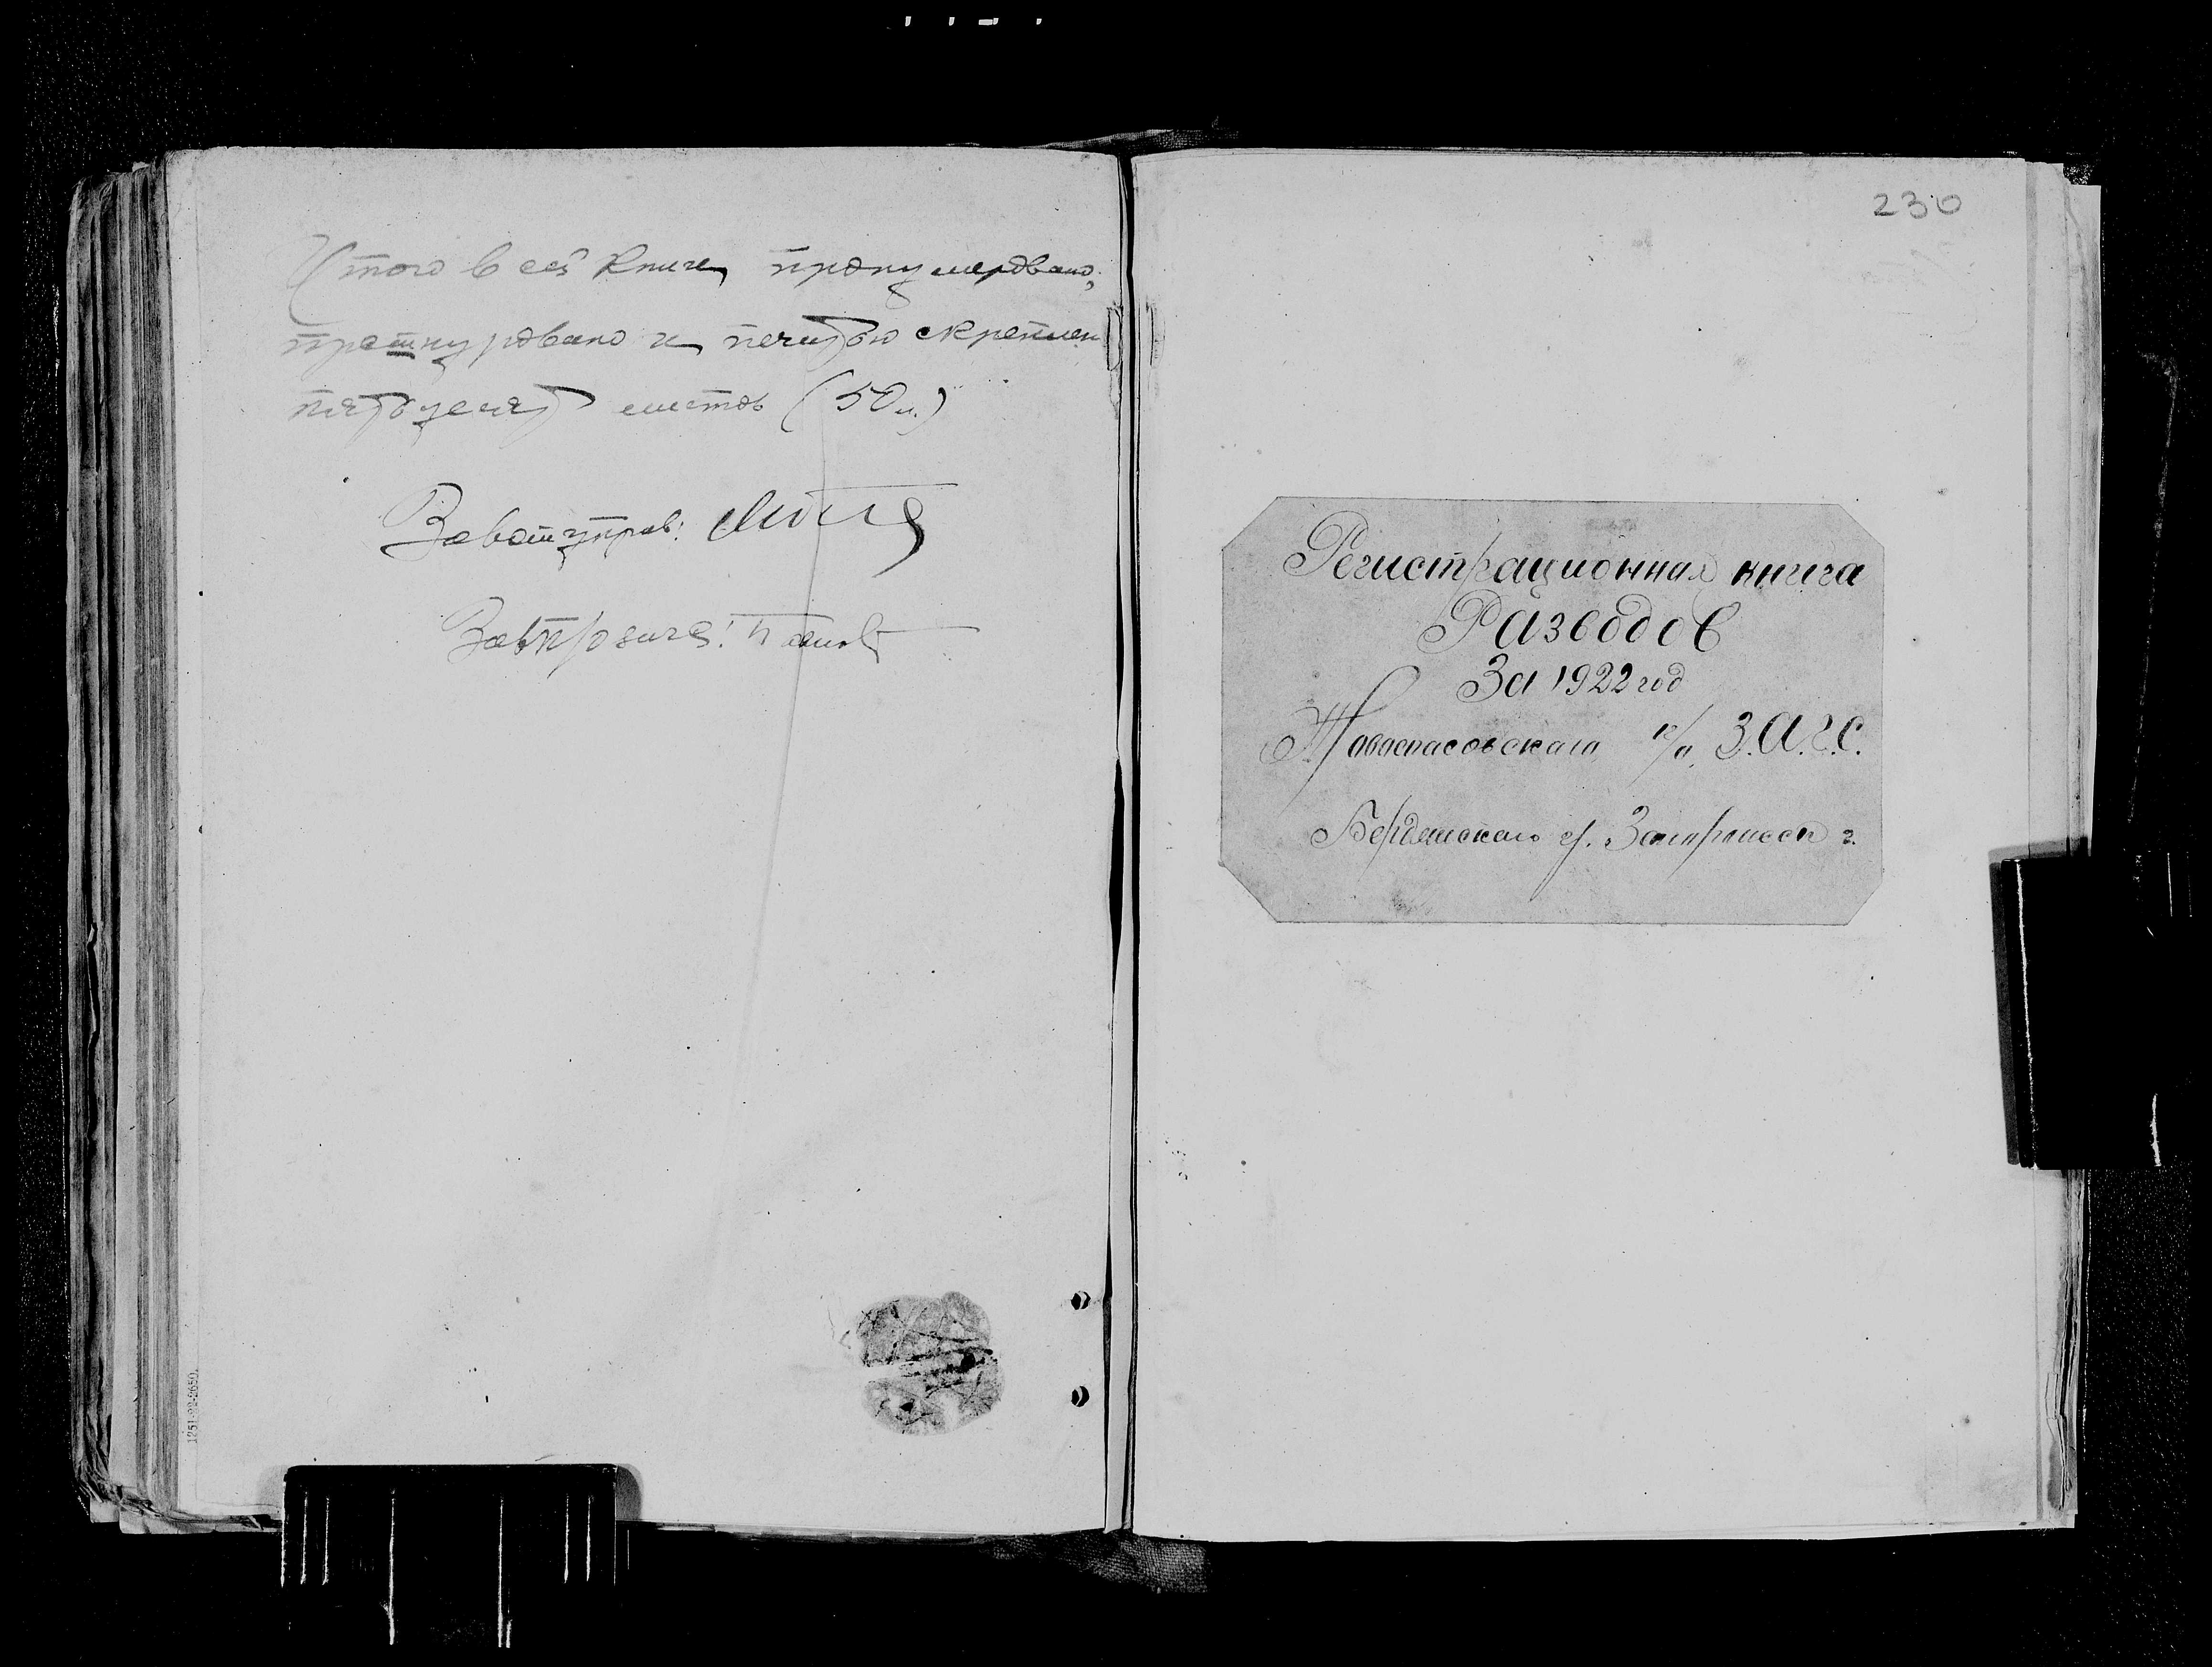 Итого в сей книге пронумеровано,
прошнуровано и печатью скреплен
пятьдесят листов (50 л.)
Заватуправ:
1251-22-2650.
230
Регистрационная книга
Разводов
За 1922 год
Новоспасовского п/о З.А.Г.С.
Бердянского у. Запорожск г.